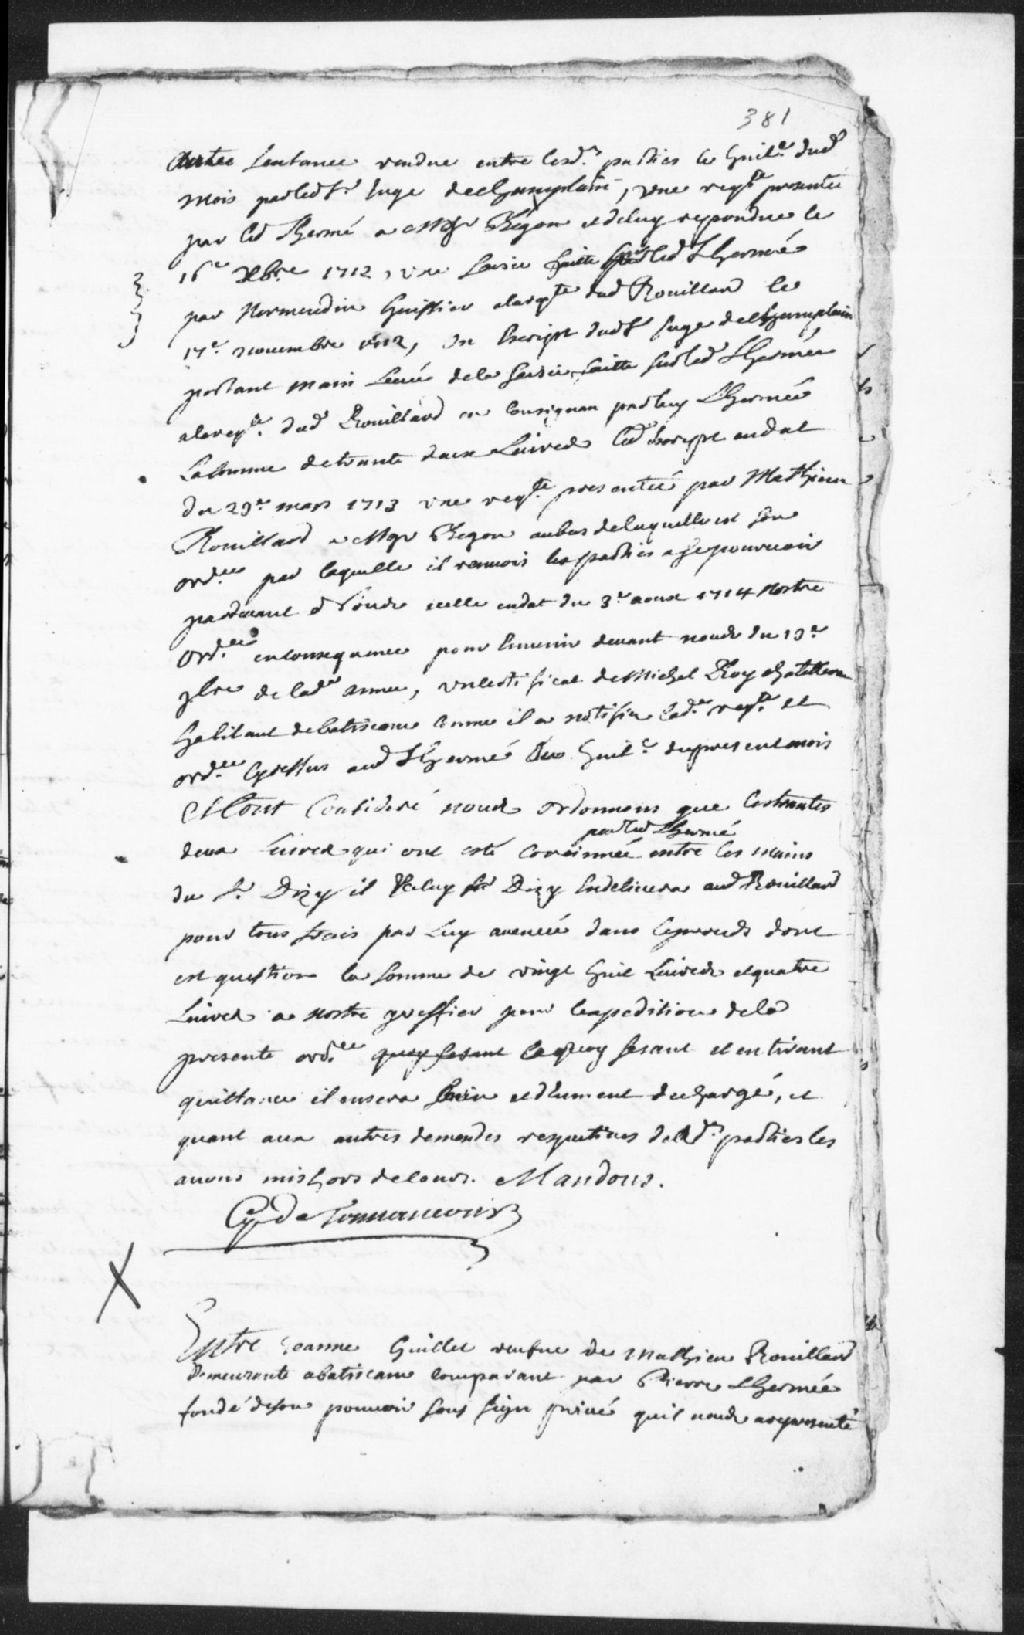 381
Sentance rendue entre lesd. parties le huit.e dud
mois par led Sr. Juge de Champlain, une req.te presentée
par led Lhermé a Mgr Begon et de luy repondue le
16.e Xbre 1712, une Saisie faitte sur led Lhermée
par Normendin huissier a la req.te dud Rouillard le
17.e novembre 1712, un Escript dud Sr Juge de Champlain
portant main Levée de la Saisie faitte sur led Lhermée
a la req.te dud Rouillard en Consignan par luy Lhermée
La Somme de trente deux Livres led Escript en dat
du 29.e mars 1713 une req.te presentée par Mathieu
Rouillard a Mgr Begon au bas de laquelle est son
ord.ce par laquelle il renvois les parties a se pourvoir
pardevant Nous icelle en dat du 3.e aoust 1714 Nostre
ord.ce en consequence pour Venir devant nous du 19.e
7bre de lad. année, un certificat de Michel Roy Chatelleros
habitant de batiscan comme il a notifié lad. req.te et
ord.ce Cy dessus aud Lhermé du huit.e du present mois
Et tout Consideré nous ordonnons que les trentes
par led Lhermé
deux Livres qui ont esté Consinnée entre les mains
du Sr. Dizy il luy Sr Dizy En delivrera aud Rouillard
pour tous frais par Luy avencée dans le procés dont
est question la Somme de vingt huit Livres et quatre
Livres a Nostre greffier pour l'expedition de la
presente ord.ce quoy fesant le quoy fesant et en tirant
quittance il en sera bien et dument dechargé, et
quant aux autres demendes respectives desd. parties les
avons mis hors de cour. Mandons.
G. de Tonnancour
X
Entre Jeanne Guillet veufve de Mathieu Rouillard
Demeurante a batiscan comparant par Pierre Lhermée
fondé de son pouvoir sous sign privé quil nous a representé